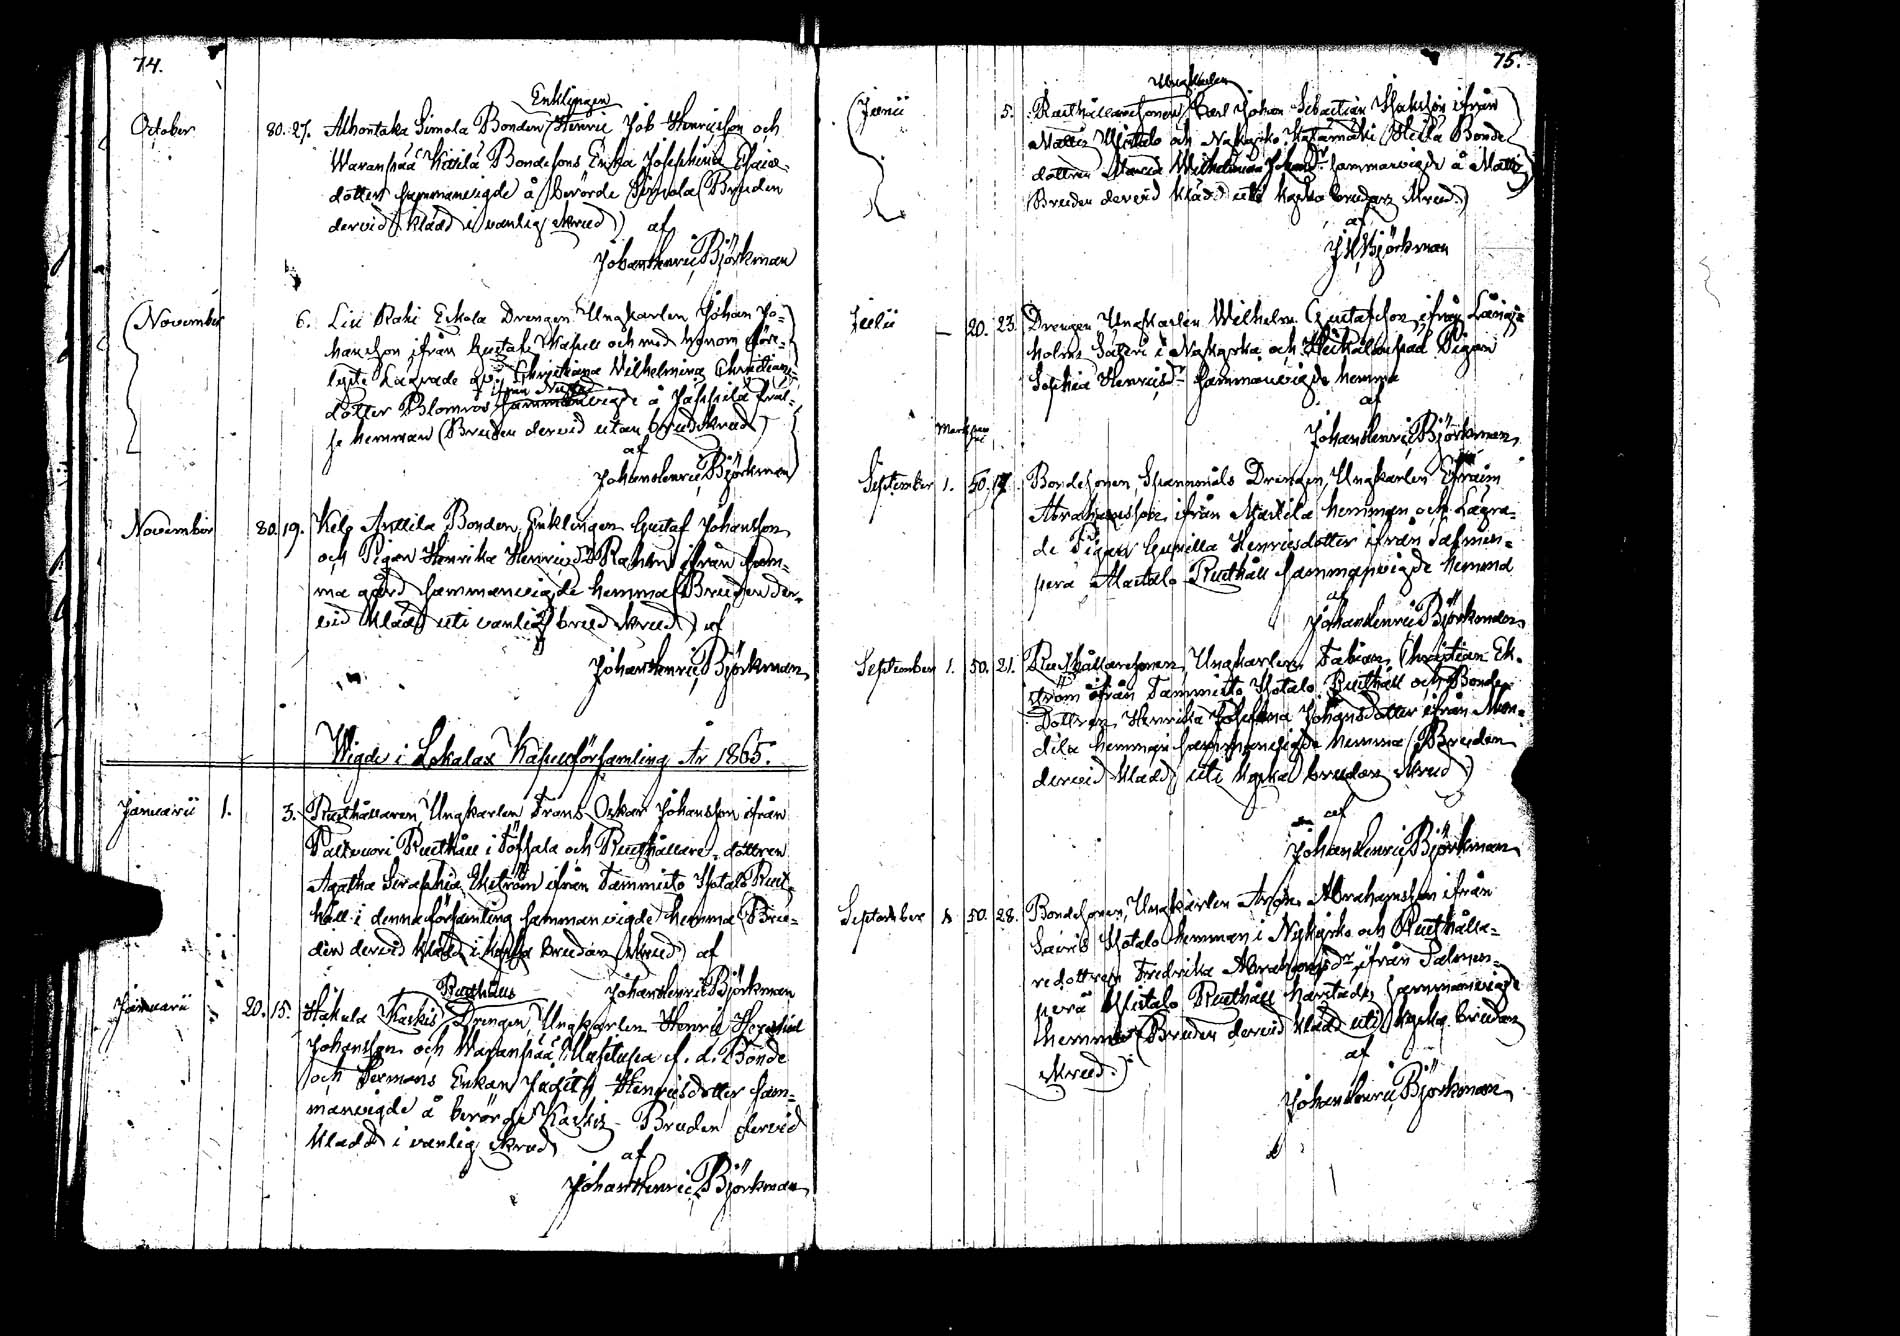 74.
Enklingen
October 80. 27. Alhontaka Simola Bonden Henric Job Henricsson och
Waranpää Kittilä Bondesons Enka Josephina Esaiæ-
dotter sammanvigde å berörde Simola (Bruden
dervid klädd i vanlig skrud) af
Johan Henric Björkman
November 6. Drengen Ungkarlen Johan Jo-
hansson ifrån Gustafs Kapell och med honom
lyste Lagrade Christiana Wilhelmina Christians-
dotter Blomros sammanvigde å fräl-
se hemman (Bruden dervid utan brudskrud)
af
Johan Henric Björkman
November 80. 19. Anttila Bonden, Enklingen Gustaf Johansson
och Pigan Henrika Henricsdr ifrån sam-
ma gård sammanvigde hemma (Bruden der-
vid klädd uti vanlig brud skrud) af
Johan Henric Björkman
Wigde i Lokalax Kapellförsamling År 1865.
Januarii 1. 3. Rusthållaren, Ungkarlen Frans Oskar Johansson ifrån
Palsvuori Rusthåll i Töfsala och Rusthållare-dottren
Agatha Seraphia Ekström ifrån Tammisto Isotalo Rust-
håll i denna församling sammanvigde hemma (Bru-
den dervid klädd i kyrko brudars skrud) af
Johan Henric Björkman
Rusthålls
Januarii 20. 15. Hakula Kaskis Drengen, Ungkarlen Henric
Johansson och Waranpää f. d. Bonde
och Enkan Judith Henricsdotter sam-
manvigde å berörde Kaskis Bruden dervid
klädd i vanlig skrud
af
Johan Henric Björkman
75.
Ungkarlen
Junii 5. Rusthållaresonen Carl Johan Sebastian Isaksson ifrån
och Nykyrko Bonde
dottren Maria Wilhelmina sammanvigde å
(Bruden dervid klädd uti kyrko brudars skrud.)
af
J H Björkman
Julii — 20. 23. Drengen Ungkarlen Wilhelm Gustafsson ifrån
holms Säteri i Nykyrko och Pigan
Sophia Henricsdr sammanvigde hemma
af
Johan Henric Björkman
Mark penni
September 1. 50. 17. Bondesonen, Spannmåls Drengen, Ungkarlen Efraim
Abrahamsson ifrån hemman och Lagra-
de Pigan Gunilla Henricsdotter ifrån Salmen-
perä Rusthåll sammanvigde hemma
af
Johan Henric Björkman
September 1. 50. 21. Rusthållaresonen, Ungkarlen Fabian Christian Ek-
ström ifrån Tammisto Isotalo Rusthåll och Bonde
Dottren Henrika Josefina Johansdotter ifrån
dila hemman sammanvigde hemma (Bruden
dervid klädd uti kyrko brudars skrud)
af
Johan Henric Björkman
September 50. 28. Bondesonen, Ungkarlen Abrahamsson ifrån
Isotalo hemman i Nykyrko och Rusthålla-
redottren Fredrika Abrahamsdr ifrån Salmen-
perä Rusthåll sammanvigde
hemma (Bruden dervid klädd uti kyrko brudars
skrud.)
af
Johan Henric Björkman